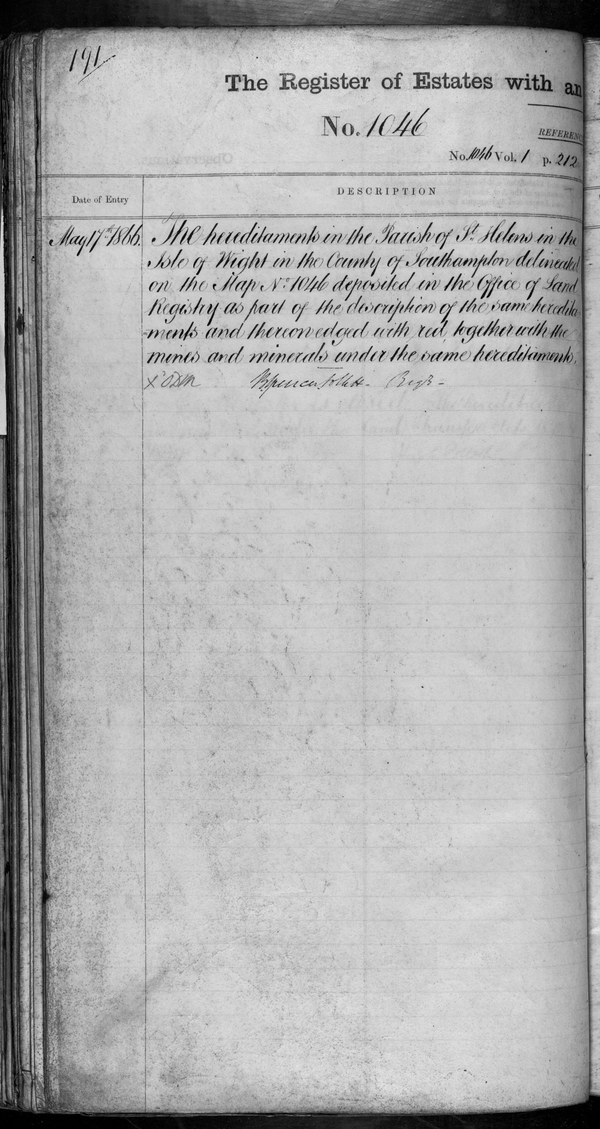 191
The Register of Estates with an
No. 1046
REFERENC
No. 1046 Vol. 1 p. 212
Date of Entry
DESCRIPTION
May 17th 1866. The hereditaments in the Parish of St. Helens in the
Isle of Wight in the County of Southampton delineated
on the Map No. 1046 deposited in the Office of Land
Registry as part of the description of the same heredita
-ments and thereon edged with red, together with the
mines and minerals under the same hereditaments.
Regr.